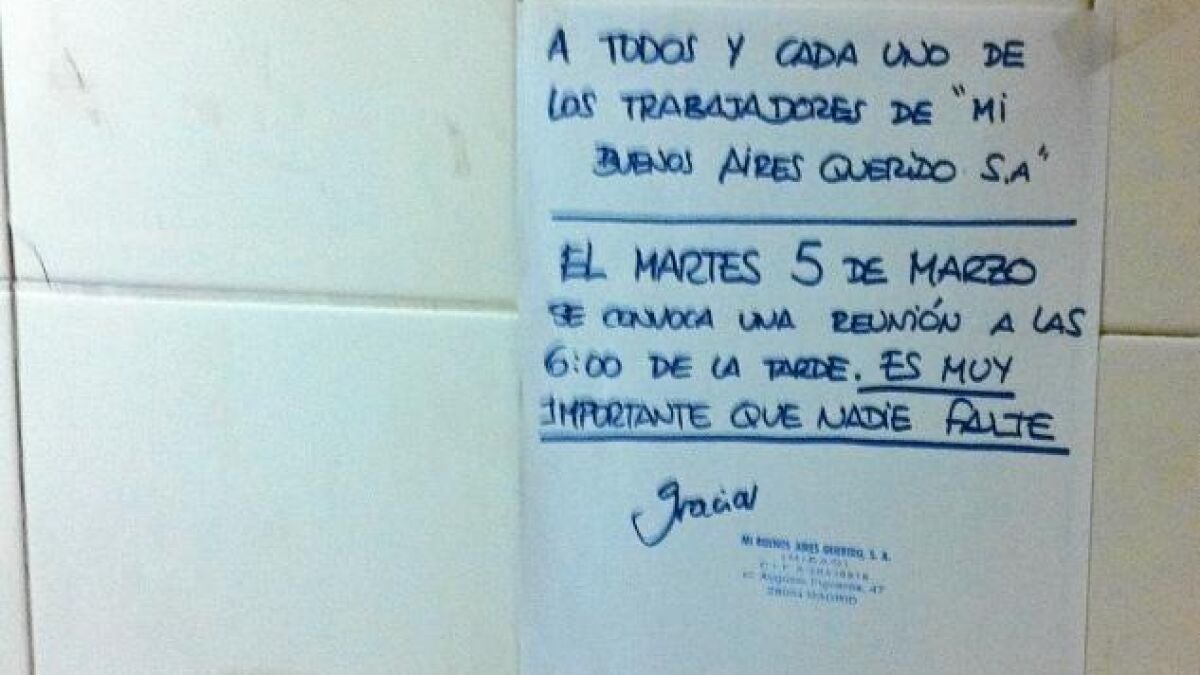 A TODOS Y CADA UNO DE
LOS TRABAJADORES DE "Mi
BUENOS AIRES QUERIDO S.A"
EL MARTES 5 DE MARZO
SE CONVOCA UNA REUNIÓN A LAS
6:00 DE LA TARDE. ES MUY
IMPORTANTE QUE NADIE FALTE
Gracias
MI BUENOS AIRES QUERIDO, S. A.
C. I. F.
C/ Augusto Figueroa, 47
28004 MADRID